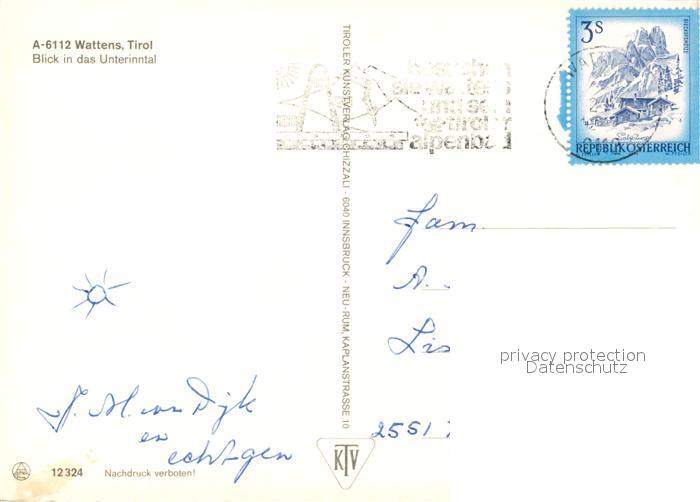 A-6112 Wattens, Tirol
Blick in das Unterinntal
TIROLER KUNSTVERLAG CHIZZALI · 6040 INNSBRUCK - NEU-RUM, KAPLANSTRASSE 10
3S
REPUBLIK ÖSTERREICH
und sein
alpenbad
Fam.
A.
Lis
2551
privacy protection
Datenschutz
J. M. van Dijk
en
echtgen
KTV
12324 Nachdruck verboten!